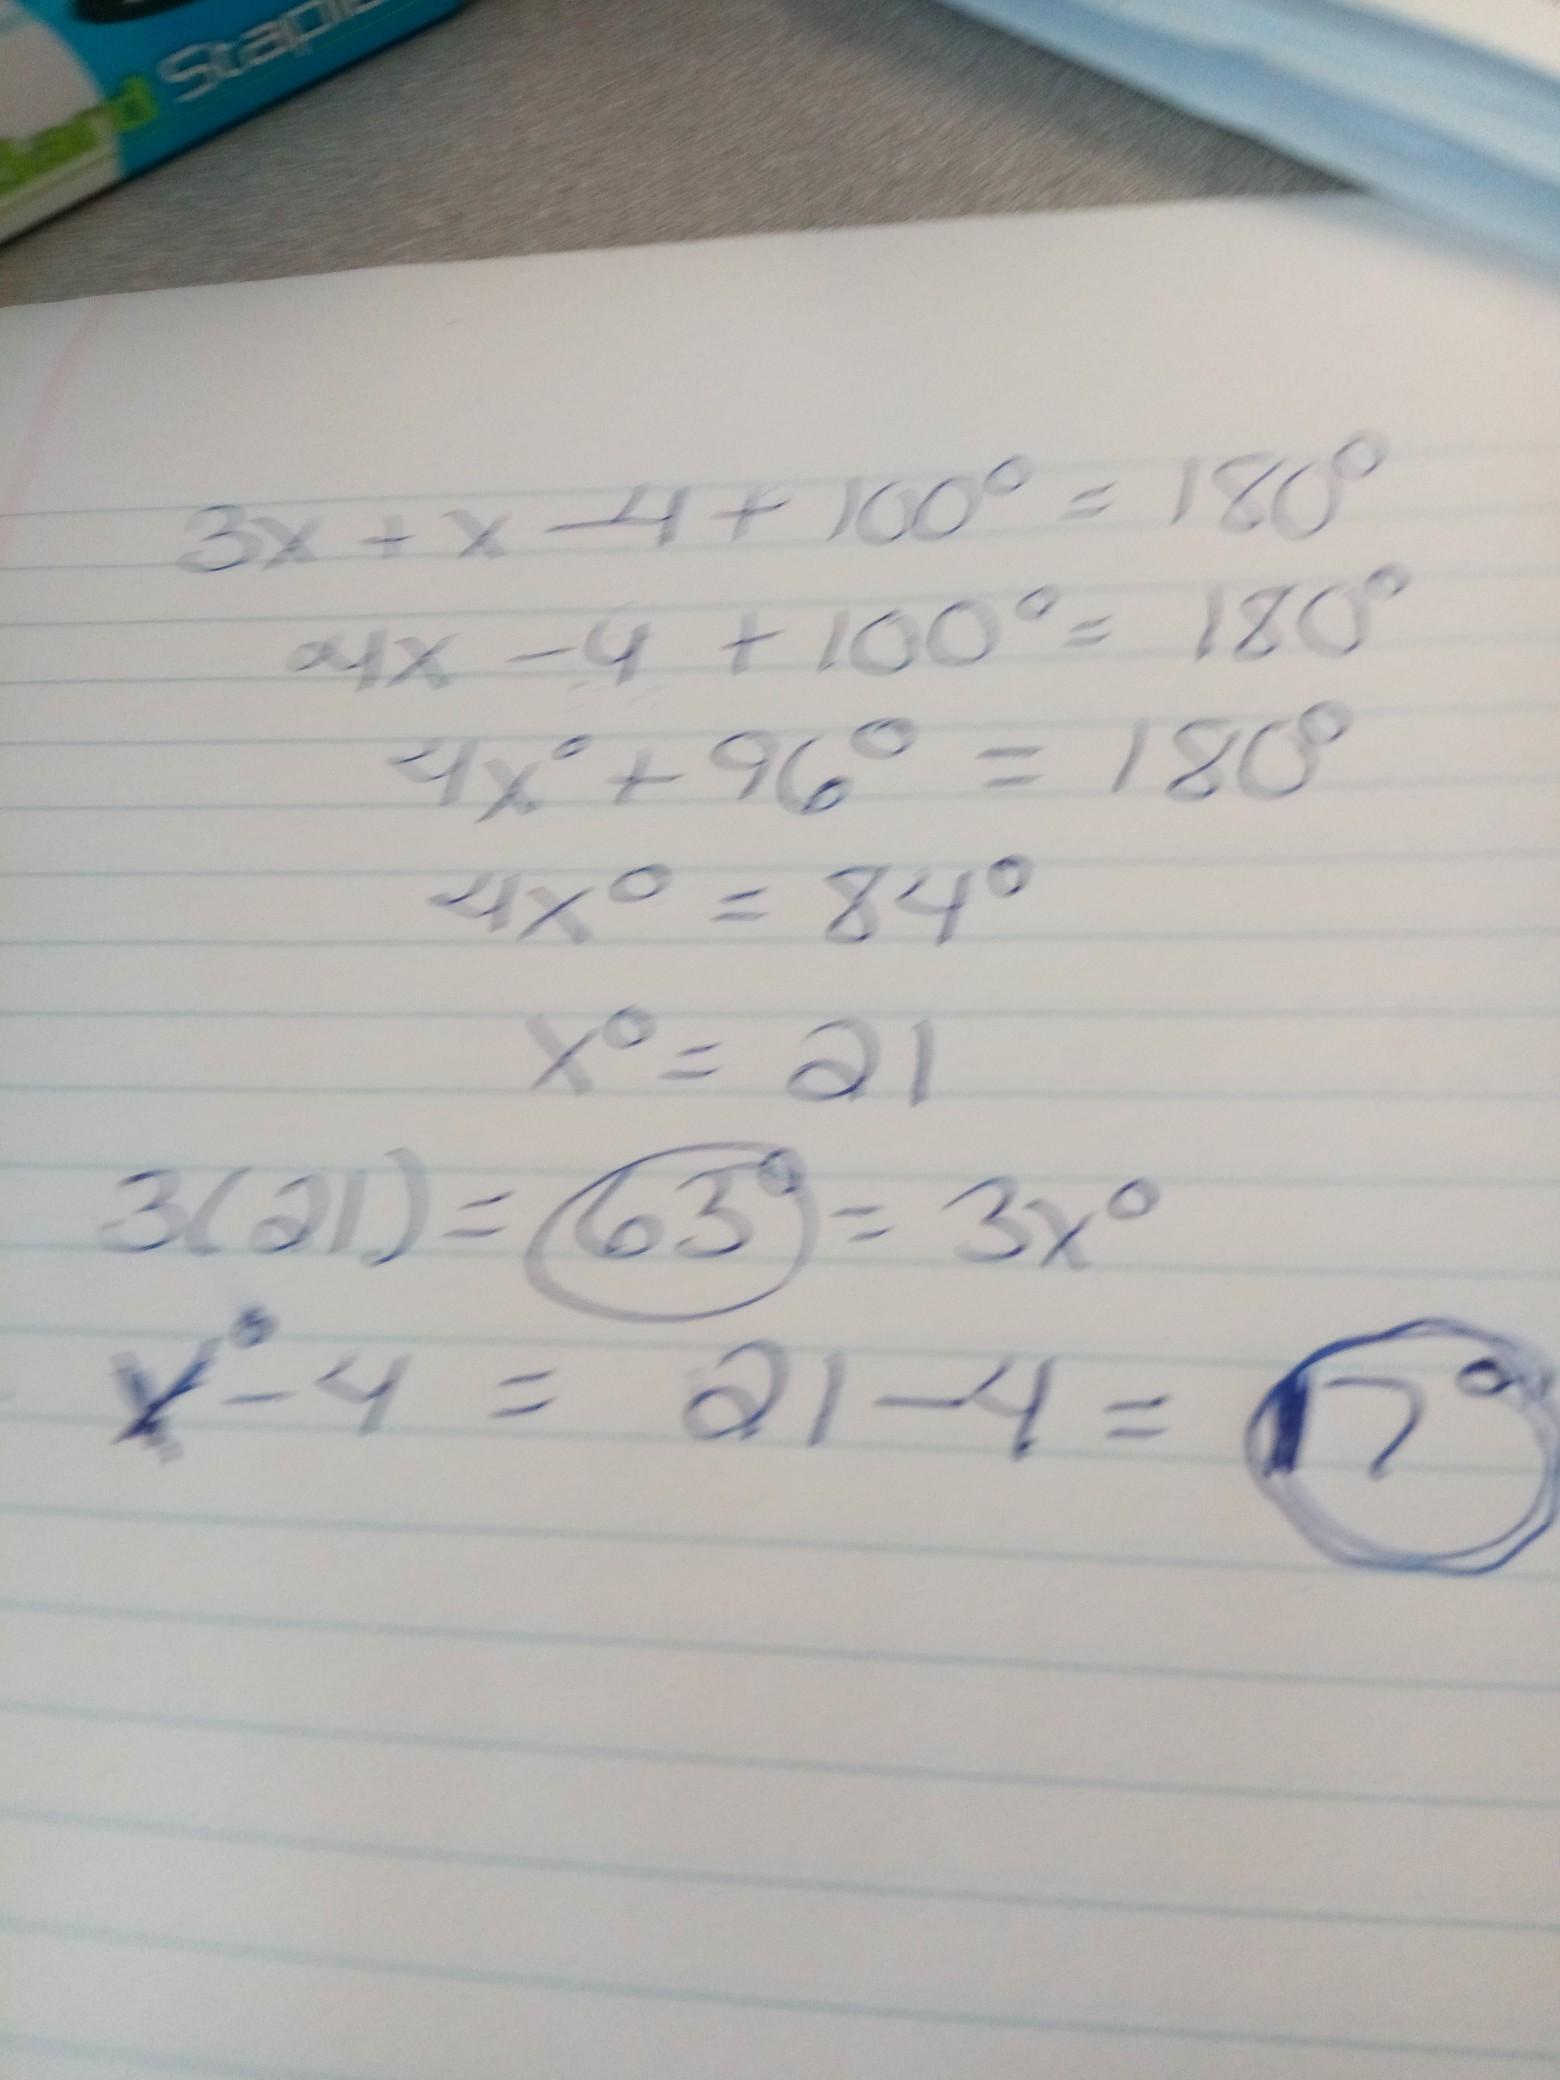 Staple
3x + x - 4 + 100° = 180°
4x - 4 + 100° = 180°
4x° + 96° = 180°
4x° = 84°
x° = 21
3(21) = 63° = 3x°
x° - 4 = 21 - 4 = 17°